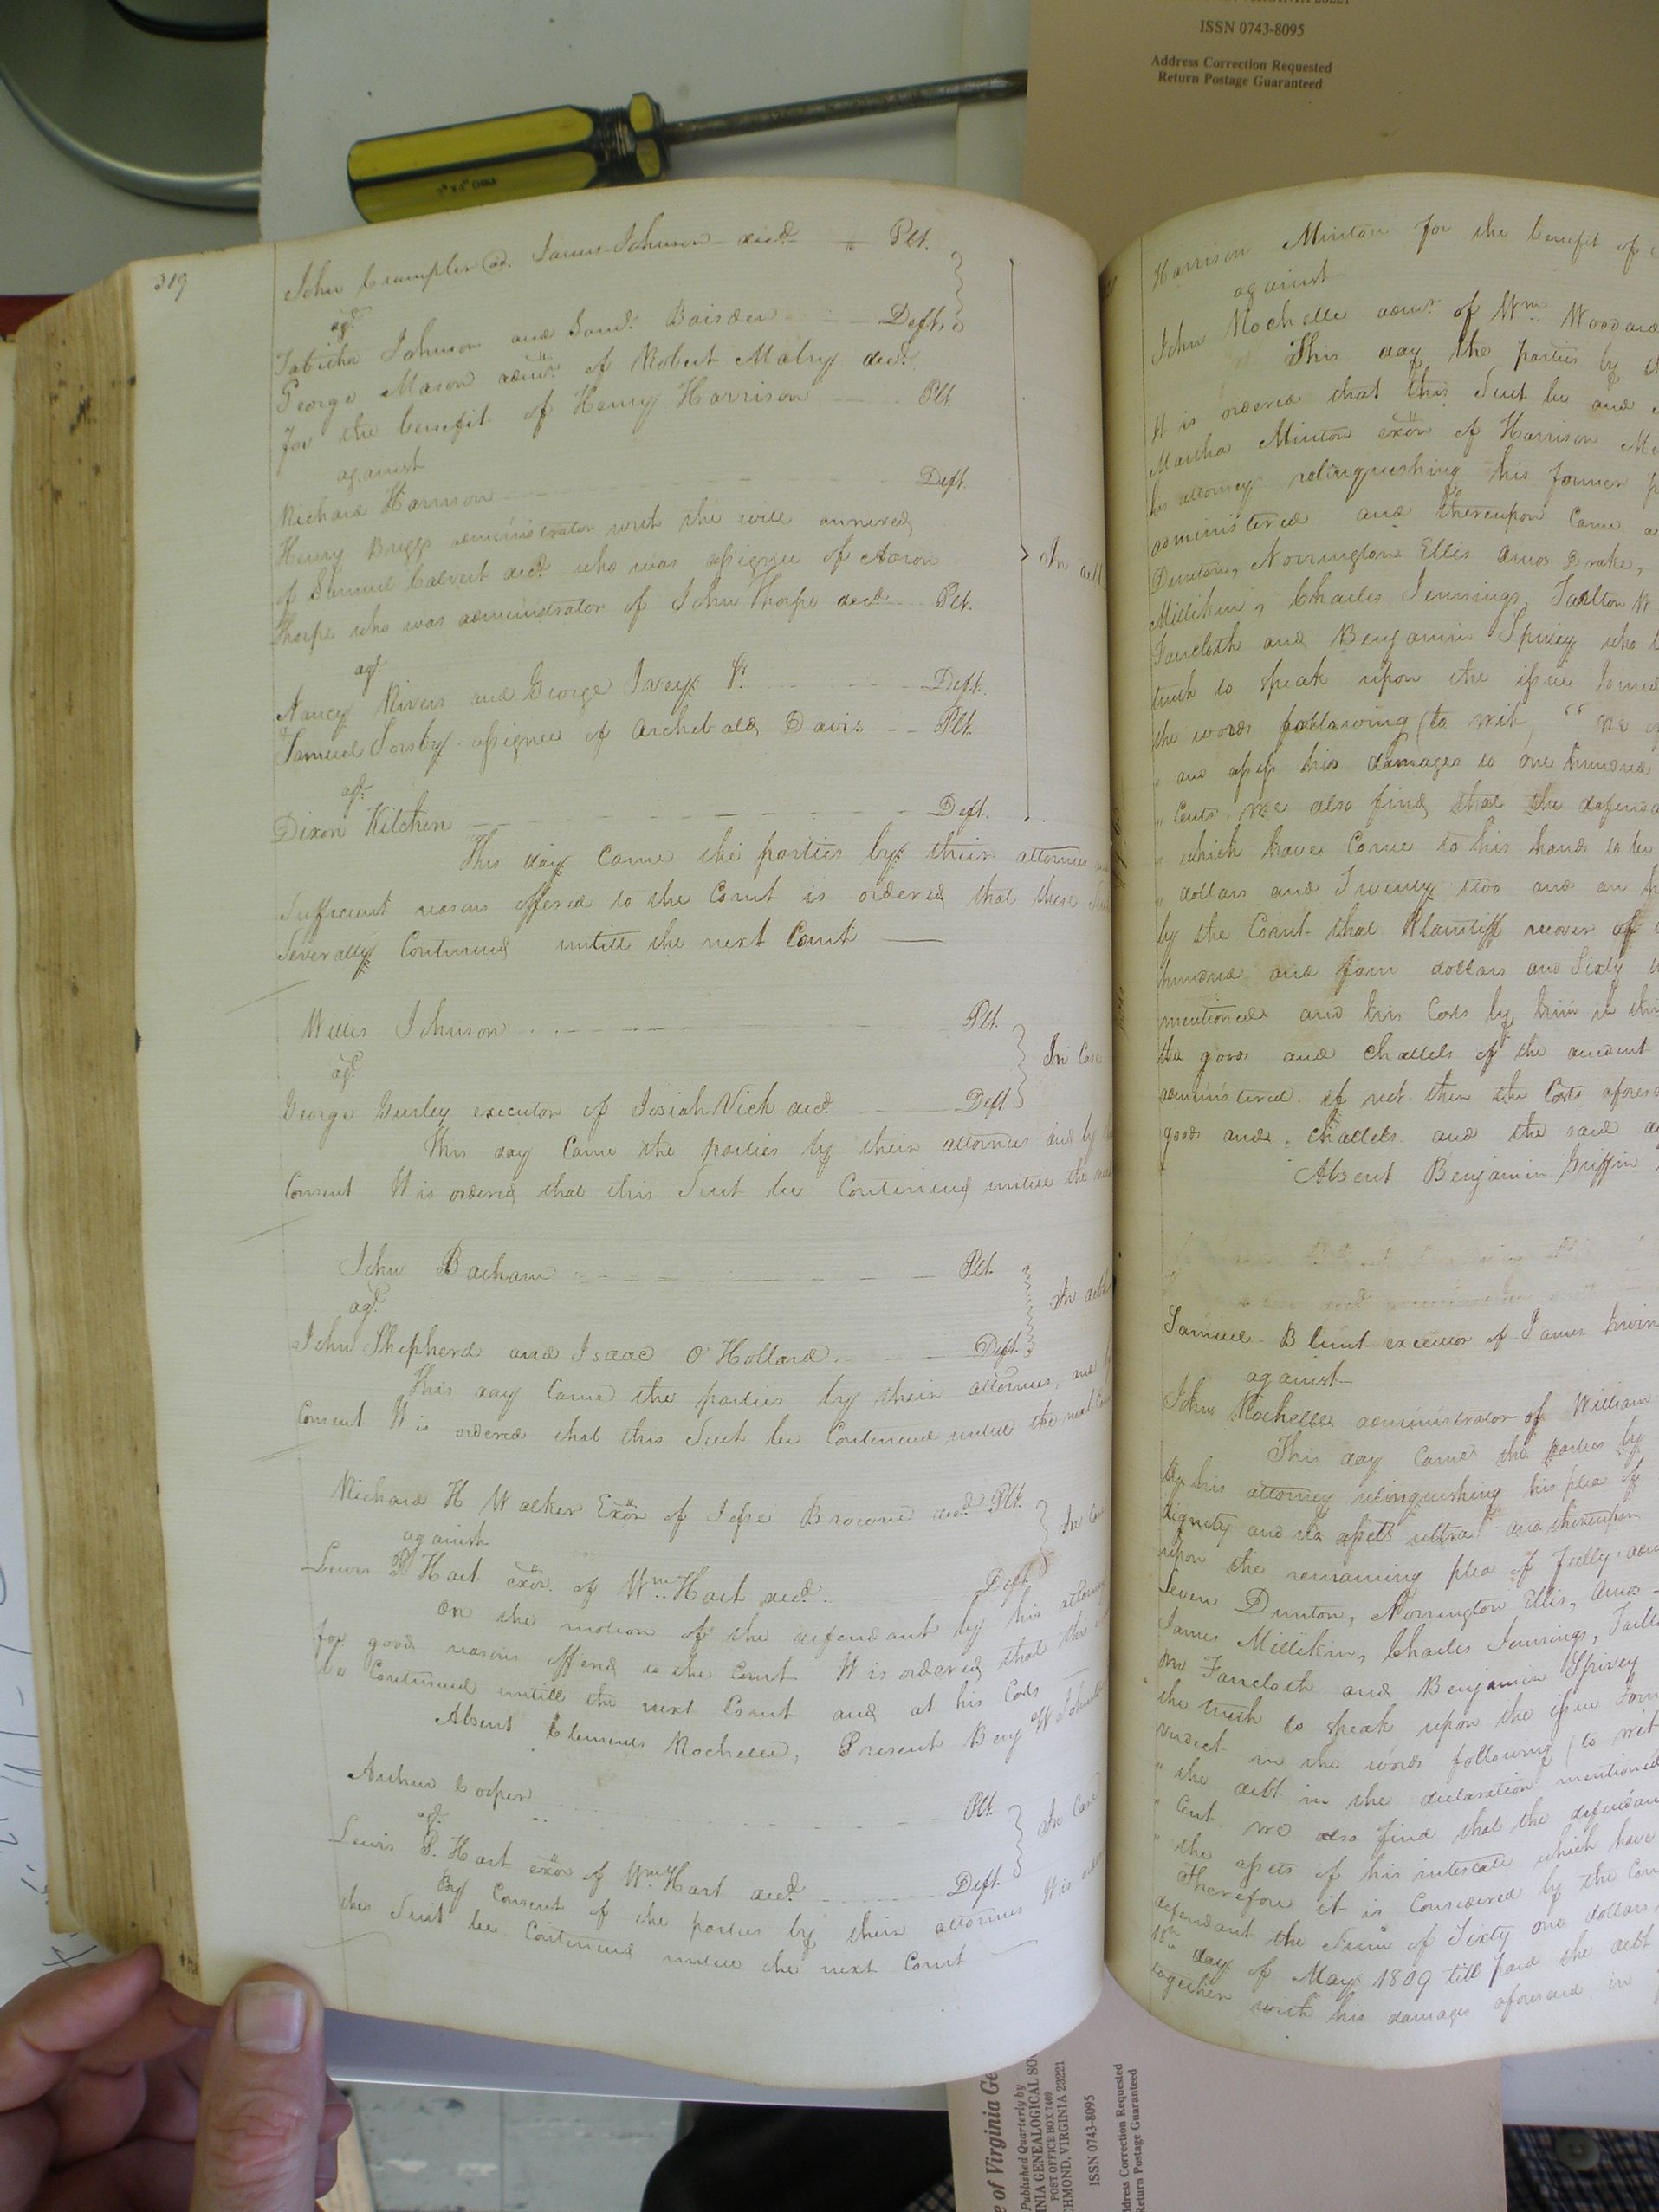 ISSN 0743-8095
Address Correction Requested
Return Postage Guaranteed
CHINA
319
John Crumpler ad. James Johnson decd. Plt.
agt.
Tabitha Johnson and Saml. Baisden Defts.
George Mason admr. of Robert Mabry decd.
for the benefit of Henry Harrison Plt.
against
Richard Harrison Deft.
Henry Briggs administrator with the will annexed
of Samuel Calvert decd. who was assignee of Aaron
Thorpe who was administrator of John Thorpe decd. Plt.
agt.
Nancy Rivers and George Ivey Deft.
Samuel Sorsby assignee of Archibald Davis Plt.
agt.
Dixon Kitchen Deft.
In debt
This day came the parties by their attornies
Sufficient reasons offered to the Court is ordered that these
Severally Continued untill the next Court
Willis Johnson Plt.
agt.
In Case
George Gurley executor of Josiah Vick decd. Deft
This day Came the parties by their attornies and by
Consent It is ordered that this Suit be Continued untill the
John Barham Plt.
agt.
In debt
John Shepherd and Isaac O'Holland. Deft.
This day Came the parties by their attornies, and
Consent It is ordered that this Suit be Continued untill the next
Richard H Walker Exor of Jesse Browne decd. Plt.
against
Lewis Hart exor. of Wm. Hart decd. Deft.
On the motion of the defendant by his attorney
for good reasons offered to the Court It is ordered that the
be Continued untill the next Court and at his Costs
Absent Clements Rochelle, Present Benj W Johnston
Arthur Cooper Plt.
agt.
In Case
Lewis Hart exor of Wm. Hart decd. Deft.
By Consent of the parties by their attornies It is
this Suit be Continued untill the next Court
Harrison Minton for the benefit of
against
John Rochelle admr. of Wm. Woodard
This day the parties by
It is ordered that this Suit be and
Martha Minton exor of Harrison
his attorney relinquishing his former
administered and thereupon Came a
Dunton, Norrington Ellis Amos Drake,
Millikin, Charles Jennings, Tarlton W
Faircloth and Benjamin Spivey who
truth to speak upon the issue Joined
the words following (to wit, "We
" and assess his damages to one hundred
" Cents. We also find that the defendant
" which have Come to his hands to be
" dollars and Twenty two and an
by the Court that Plaintiff recover of
hundred and four dollars and Sixty
mentioned and his Costs by him in this
the goods and Chattels of the decedent
administered if not then the Costs aforesaid
goods and Chattels and the said
Absent Benjamin Griffin
Samuel Blunt executor of James
against
John Rochelle administrator of William
This day Came the parties by
by his attorney relinquishing his plea of
dignity and no assets ultra and thereupon
upon the remaining plea of fully
Seven Dunton, Norrington Ellis, Amos
James Millikin, Charles Jennings,
Faircloth and Benjamin Spivey
the truth to speak upon the issue
Verdict in the words following (to wit
" the debt in the declaration mentioned
" Cent. We also find that the defendant
" the assets of his intestate which have
Therefore it is Considered by the Court
defendant the Sum of Sixty one dollars
18th day of May 1809 till paid the debt
together with his damages aforesaid in
Published Quarterly by
POST OFFICE BOX 7469
RICHMOND, VIRGINIA 23221
ISSN 0743-8095
Address Correction Requested
Return Postage Guaranteed